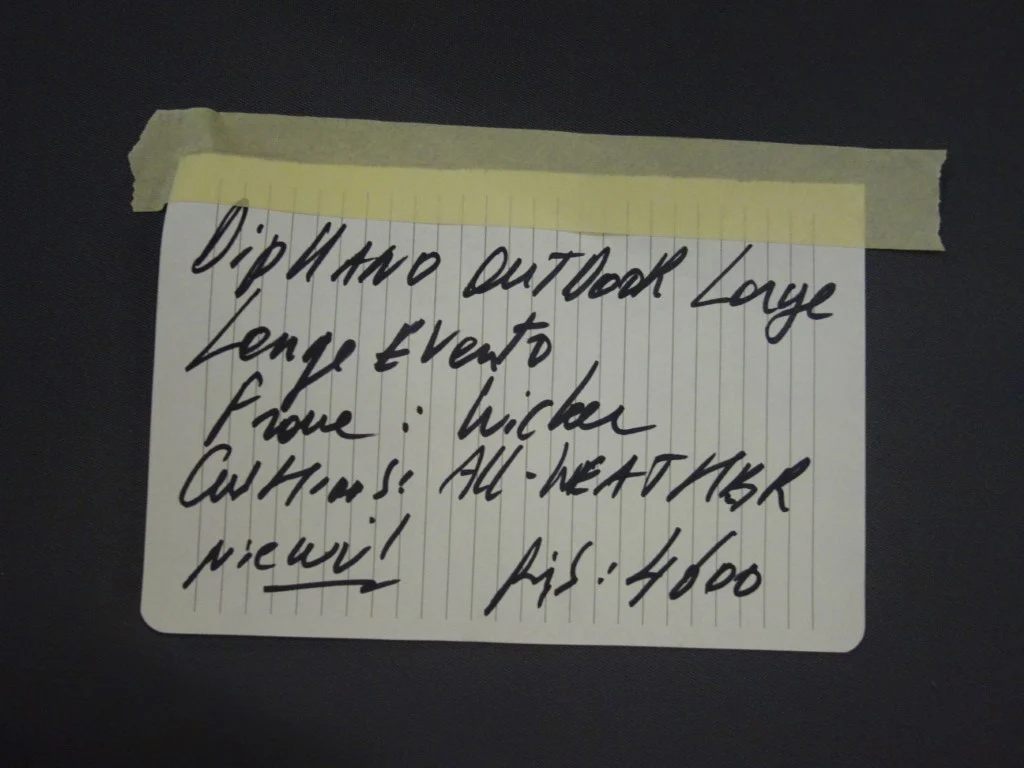 DipHANO OUTDOOR Large
Longe Evento
Frame : Wicker
CusHions: All-WEATHER
Nieuw!    Prijs: 4600